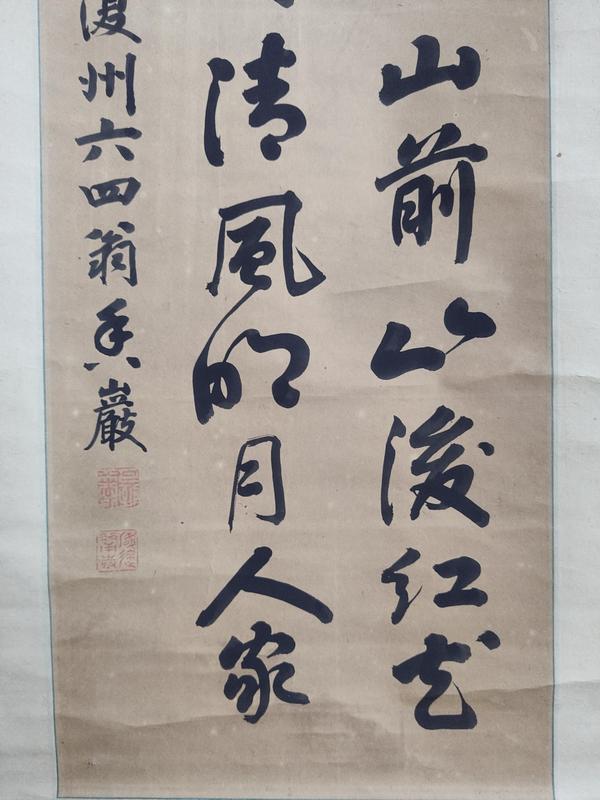 山前山後紅花
清風明月人家
復州六四翁香巖